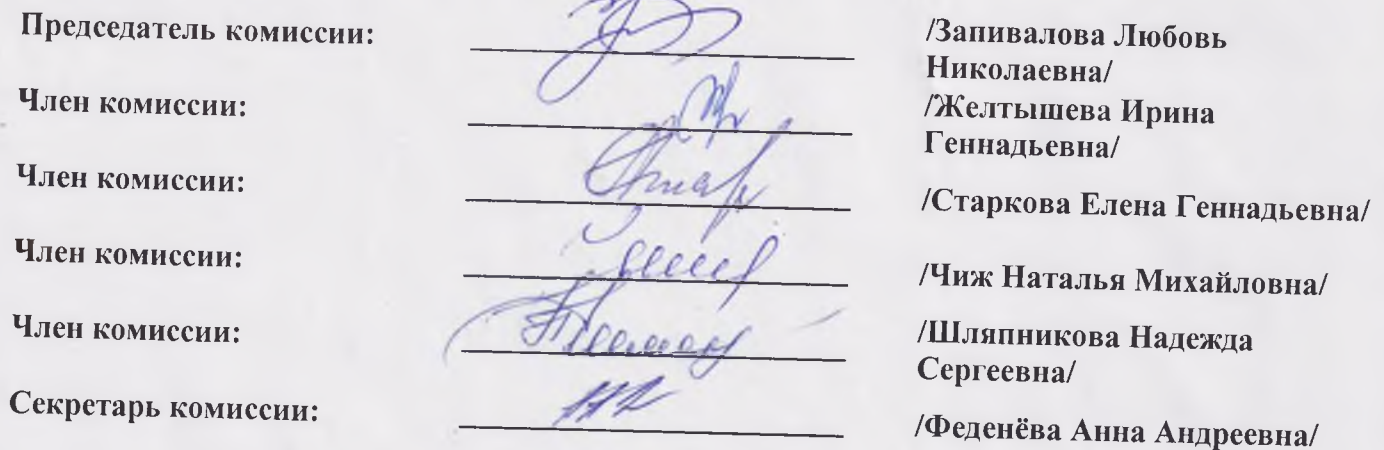 Председатель комиссии: /Запивалова Любовь
Николаевна/
Член комиссии: /Желтышева Ирина
Геннадьевна/
Член комиссии: /Старкова Елена Геннадьевна/
Член комиссии: /Чиж Наталья Михайловна/
Член комиссии: /Шляпникова Надежда
Сергеевна/
Секретарь комиссии: /Феденёва Анна Андреевна/